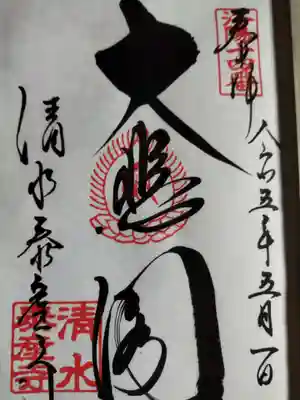 奉拝 令和五年五月一日
大悲閣
清水泰産寺
清水
泰産寺